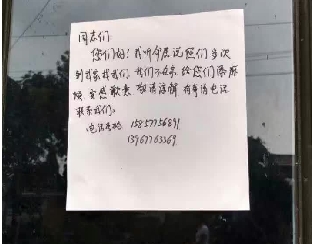 同志们
您们好！我听邻居说您们多次
到我家找我们，我们不在家给您们添麻
烦，实感歉意 敬请谅解 有事请电话
联系我们。
电话号码 15857756891
13967763369